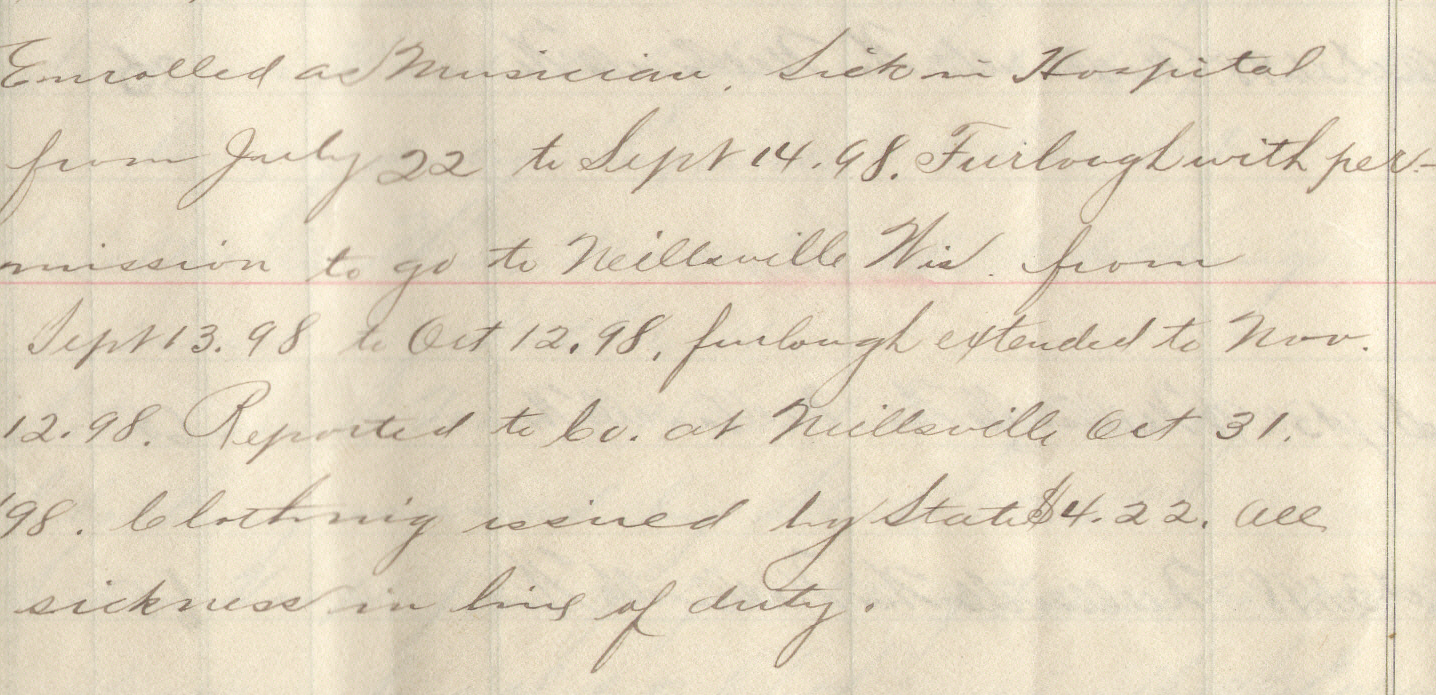 Enrolled as Musician. Sick in Hospital
from July 22 to Sept 14. 98. Furlough with per-
mission to go to Neillsville Wis. from
Sept 13. 98 to Oct 12. 98, furlough extended to Nov.
12. 98. Reported to Co. at Neillsville Oct 31.
'98. Clothing issued by State $4.22. All
sickness in line of duty.